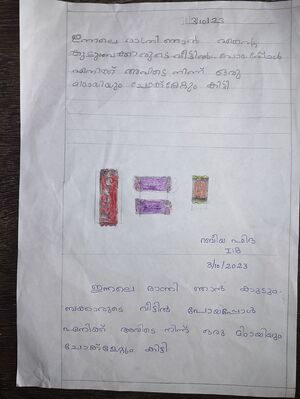 3/10/23
ഇന്നലെ രാത്രി ഞാൻ എന്റെ
കുടുംബക്കാരുടെ വീട്ടിൽ പോയപ്പോൾ
എനിക്ക് അവിടെ നിന്ന് ഒരു
മിഠായിയും ചോക്ലേറ്റും കിട്ടി
റബീയ ഫിദ
1 B
3/10/2023
ഇന്നലെ രാത്രി ഞാൻ കുടും-
ബക്കാരുടെ വീട്ടിൽ പോയപ്പോൾ
എനിക്ക് അവിടെ നിന്ന് ഒരു മിഠായിയും
ചോക്ലേറ്റും കിട്ടി